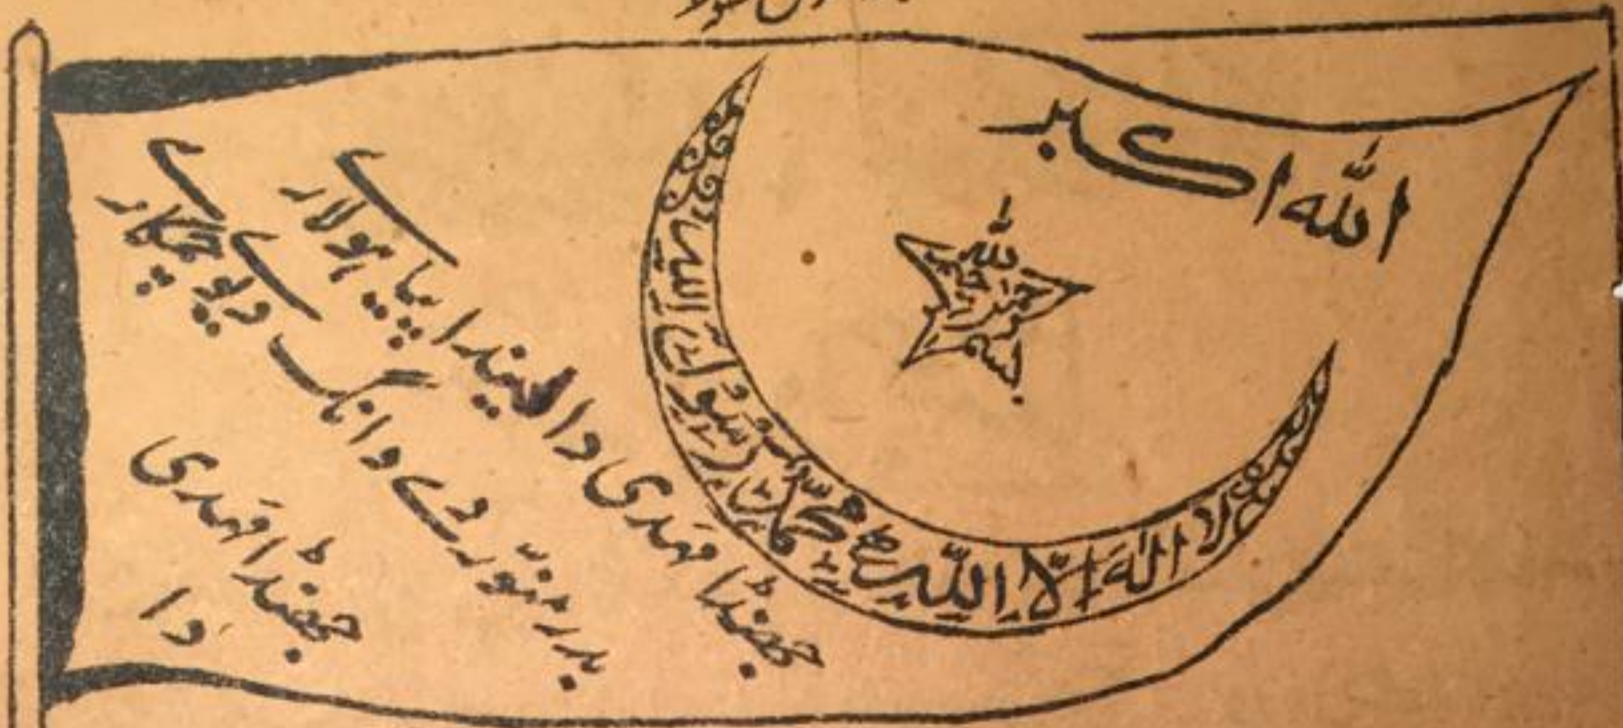 اللہ اکبر
بسم اللہ الرحمن الرحیم
لا الہ الا اللہ محمد رسول اللہ
جھنڈا مہدی دا لیندا پیا ہولارے
بدر منوّر دے وانگ دیوے چمکارے
جھنڈا مہدی
دا